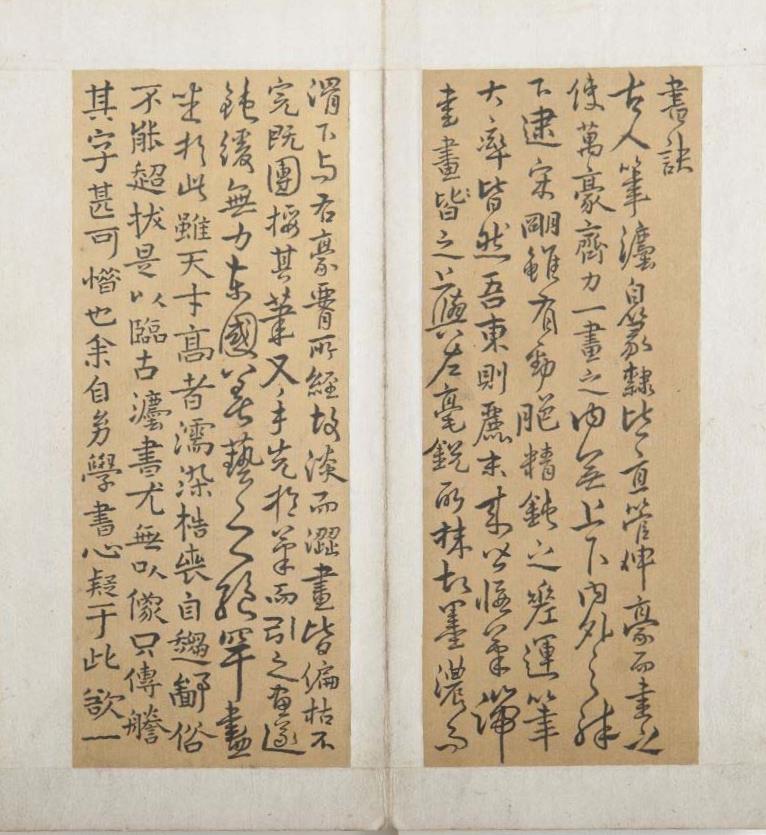 書訣
古人筆灋自篆隷皆直管伸豪而書之
使萬豪齊力一畫之內無上下內外之殊
下逮宋明雖有勁脆精鈍之差運筆
大率皆然吾東則麗末來皆偃筆端
書畫皆之上與左毫銳所抹故墨濃而
滑下与右豪腎所經故淡而澀畫皆偏枯不
完既團援其筆又手先於筆而引之畫遂
鈍緩無力東國萬藝之絶罕盡
坐於此雖天才高者濡染梏喪自趨鄙俗
不能超拔是以臨古灋書尤無以像只傳謄
其字甚可惜也余自幼學書心疑于此欲一